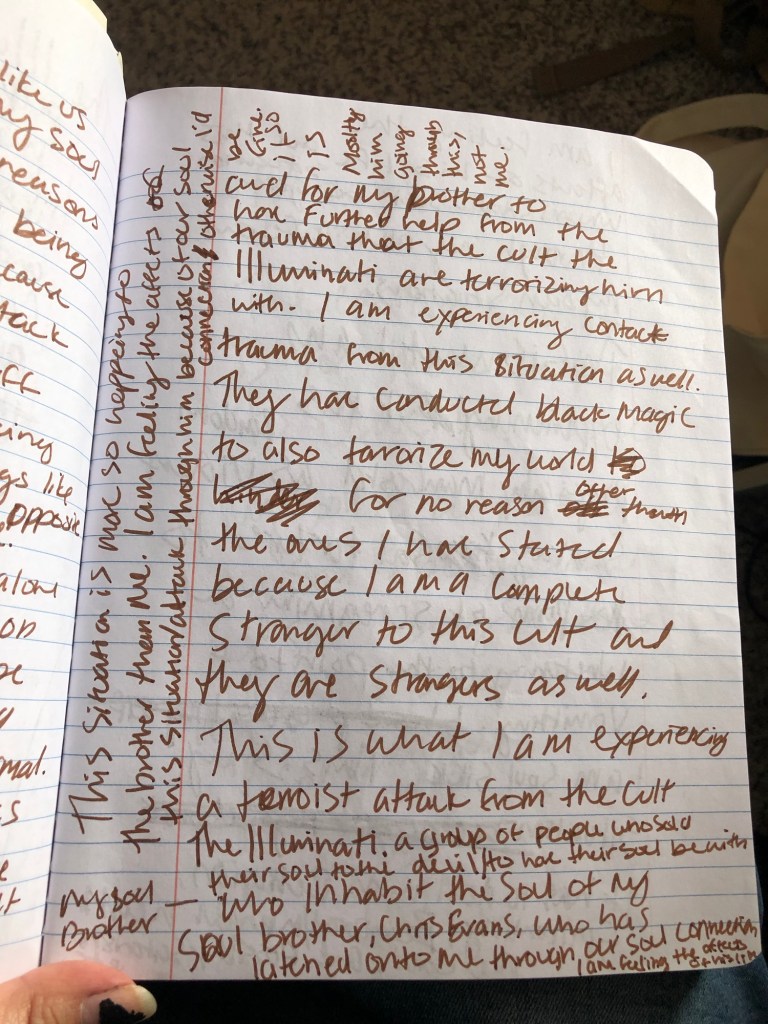 like us
my soul
reasons
being
cause
tack
ging
gs like
opposite
alone
on
mal.
This situation is more so happening to
the brother then me. I am feeling the affects of
this situation/attack through him because of our soul
connection/ otherwise i'd
be
fine.
it so
is
Mostly
him
going
through
this,
not
me.
and for my brother to
have further help from the
trauma that the cult the
Illuminati are terrorizing him
with. I am experiencing contack
trauma from this situation as well.
They have conducted black magic
to also tarroize my world
for no reason other
the ones I have stated
because I am a complete
stranger to this cult and
they are strangers as well.
This is what I am experiencing
a terroist attack from the cult
The Illuminati. a group of people who sold
their soul to the devil/to have their soul be with
my soul
Brother
— who inhabit the soul of my
soul brother, Chris Evans, who has
latched onto me through our soul connection,
I am feeling the affects
of this